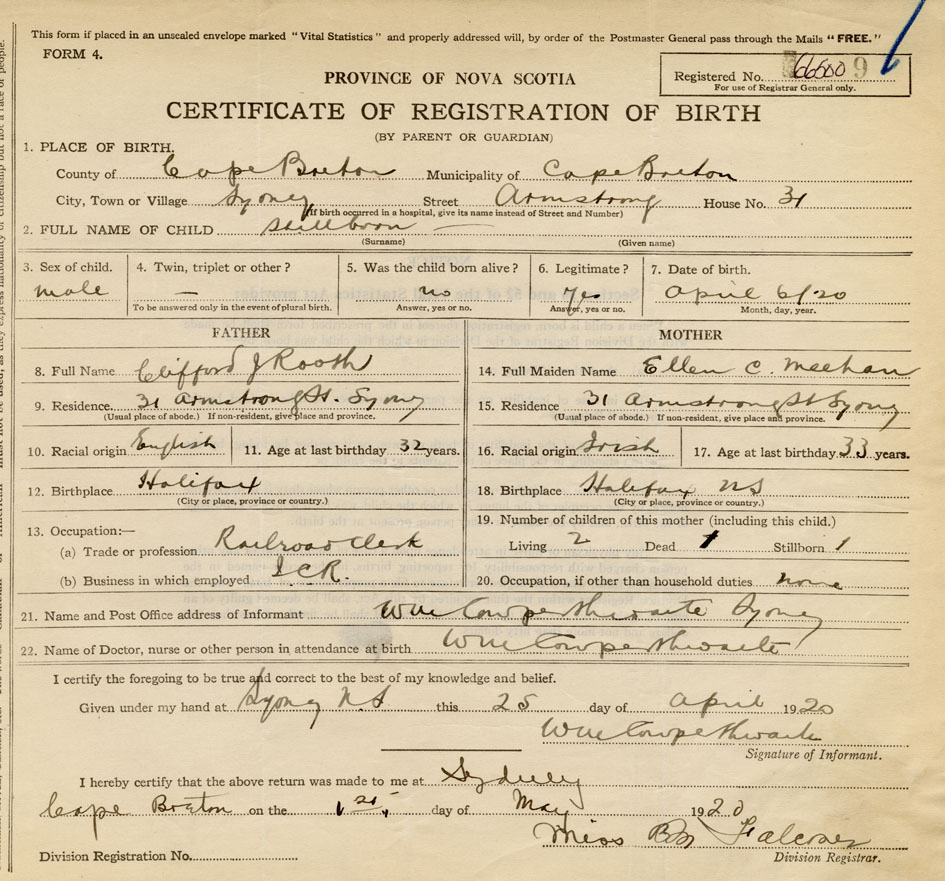 This form if placed in an unsealed envelope marked "Vital Statistics" and properly addressed will, by order of the Postmaster General pass through the Mails "FREE."
FORM 4.
PROVINCE OF NOVA SCOTIA
Registered No. 9
For use of Registrar General only.
CERTIFICATE OF REGISTRATION OF BIRTH
(BY PARENT OR GUARDIAN)
1. PLACE OF BIRTH.
County of Cape Breton Municipality of Cape Breton
City, Town or Village Sydney Street Armstrong House No. 31
(If birth occurred in a hospital, give its name instead of Street and Number)
2. FULL NAME OF CHILD Stillborn —
(Surname) (Given name)
3. Sex of child. 4. Twin, triplet or other? 5. Was the child born alive? 6. Legitimate? 7. Date of birth.
male — no Yes April 6/20
To be answered only in the event of plural birth. Answer, yes or no. Answer, yes or no. Month, day, year.
FATHER MOTHER
8. Full Name Clifford J Rooth 14. Full Maiden Name Ellen C. Meehan
9. Residence. 31 Armstrong St. Sydney 15. Residence 31 Armstrong St Sydney
(Usual place of abode.) If non-resident, give place and province. (Usual place of abode.) If non-resident, give place and province.
10. Racial origin English 11. Age at last birthday 32 years. 16. Racial origin Irish 17. Age at last birthday 33 years.
12. Birthplace Halifax 18. Birthplace Halifax NS
(City or place, province or country.) (City or place, province or country.)
13. Occupation:— 19. Number of children of this mother (including this child.)
(a) Trade or profession Railroad Clerk Living 2 Dead 1 Stillborn 1
(b) Business in which employed I.C.R. 20. Occupation, if other than household duties none
21. Name and Post Office address of Informant Wm Cowperthwaite Sydney
22. Name of Doctor, nurse or other person in attendance at birth Wm Cowperthwaite
I certify the foregoing to be true and correct to the best of my knowledge and belief.
Given under my hand at Sydney N.S this 25 day of April 1920
Wm Cowperthwaite
Signature of Informant.
I hereby certify that the above return was made to me at Sydney
Cape Breton on the 1st day of May 1920
Miss B M Falconer
Division Registrar.
Division Registration No.